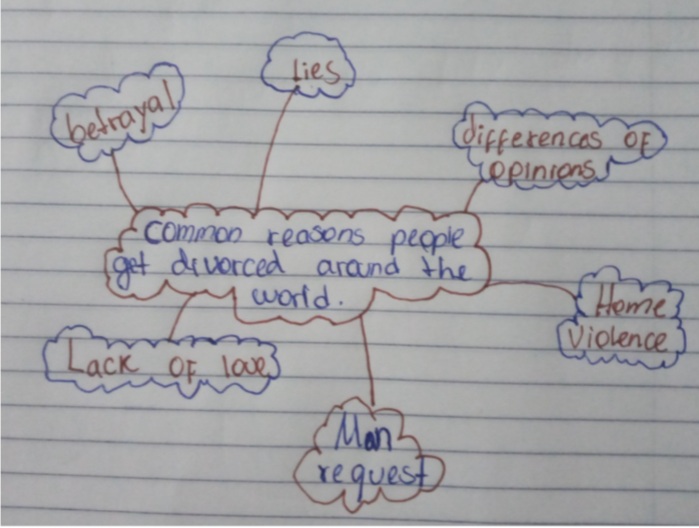 Lies
betrayal
differences of
opinions
Common reasons people
get divorced around the
world.
Home
Violence
Lack of love
Man
request